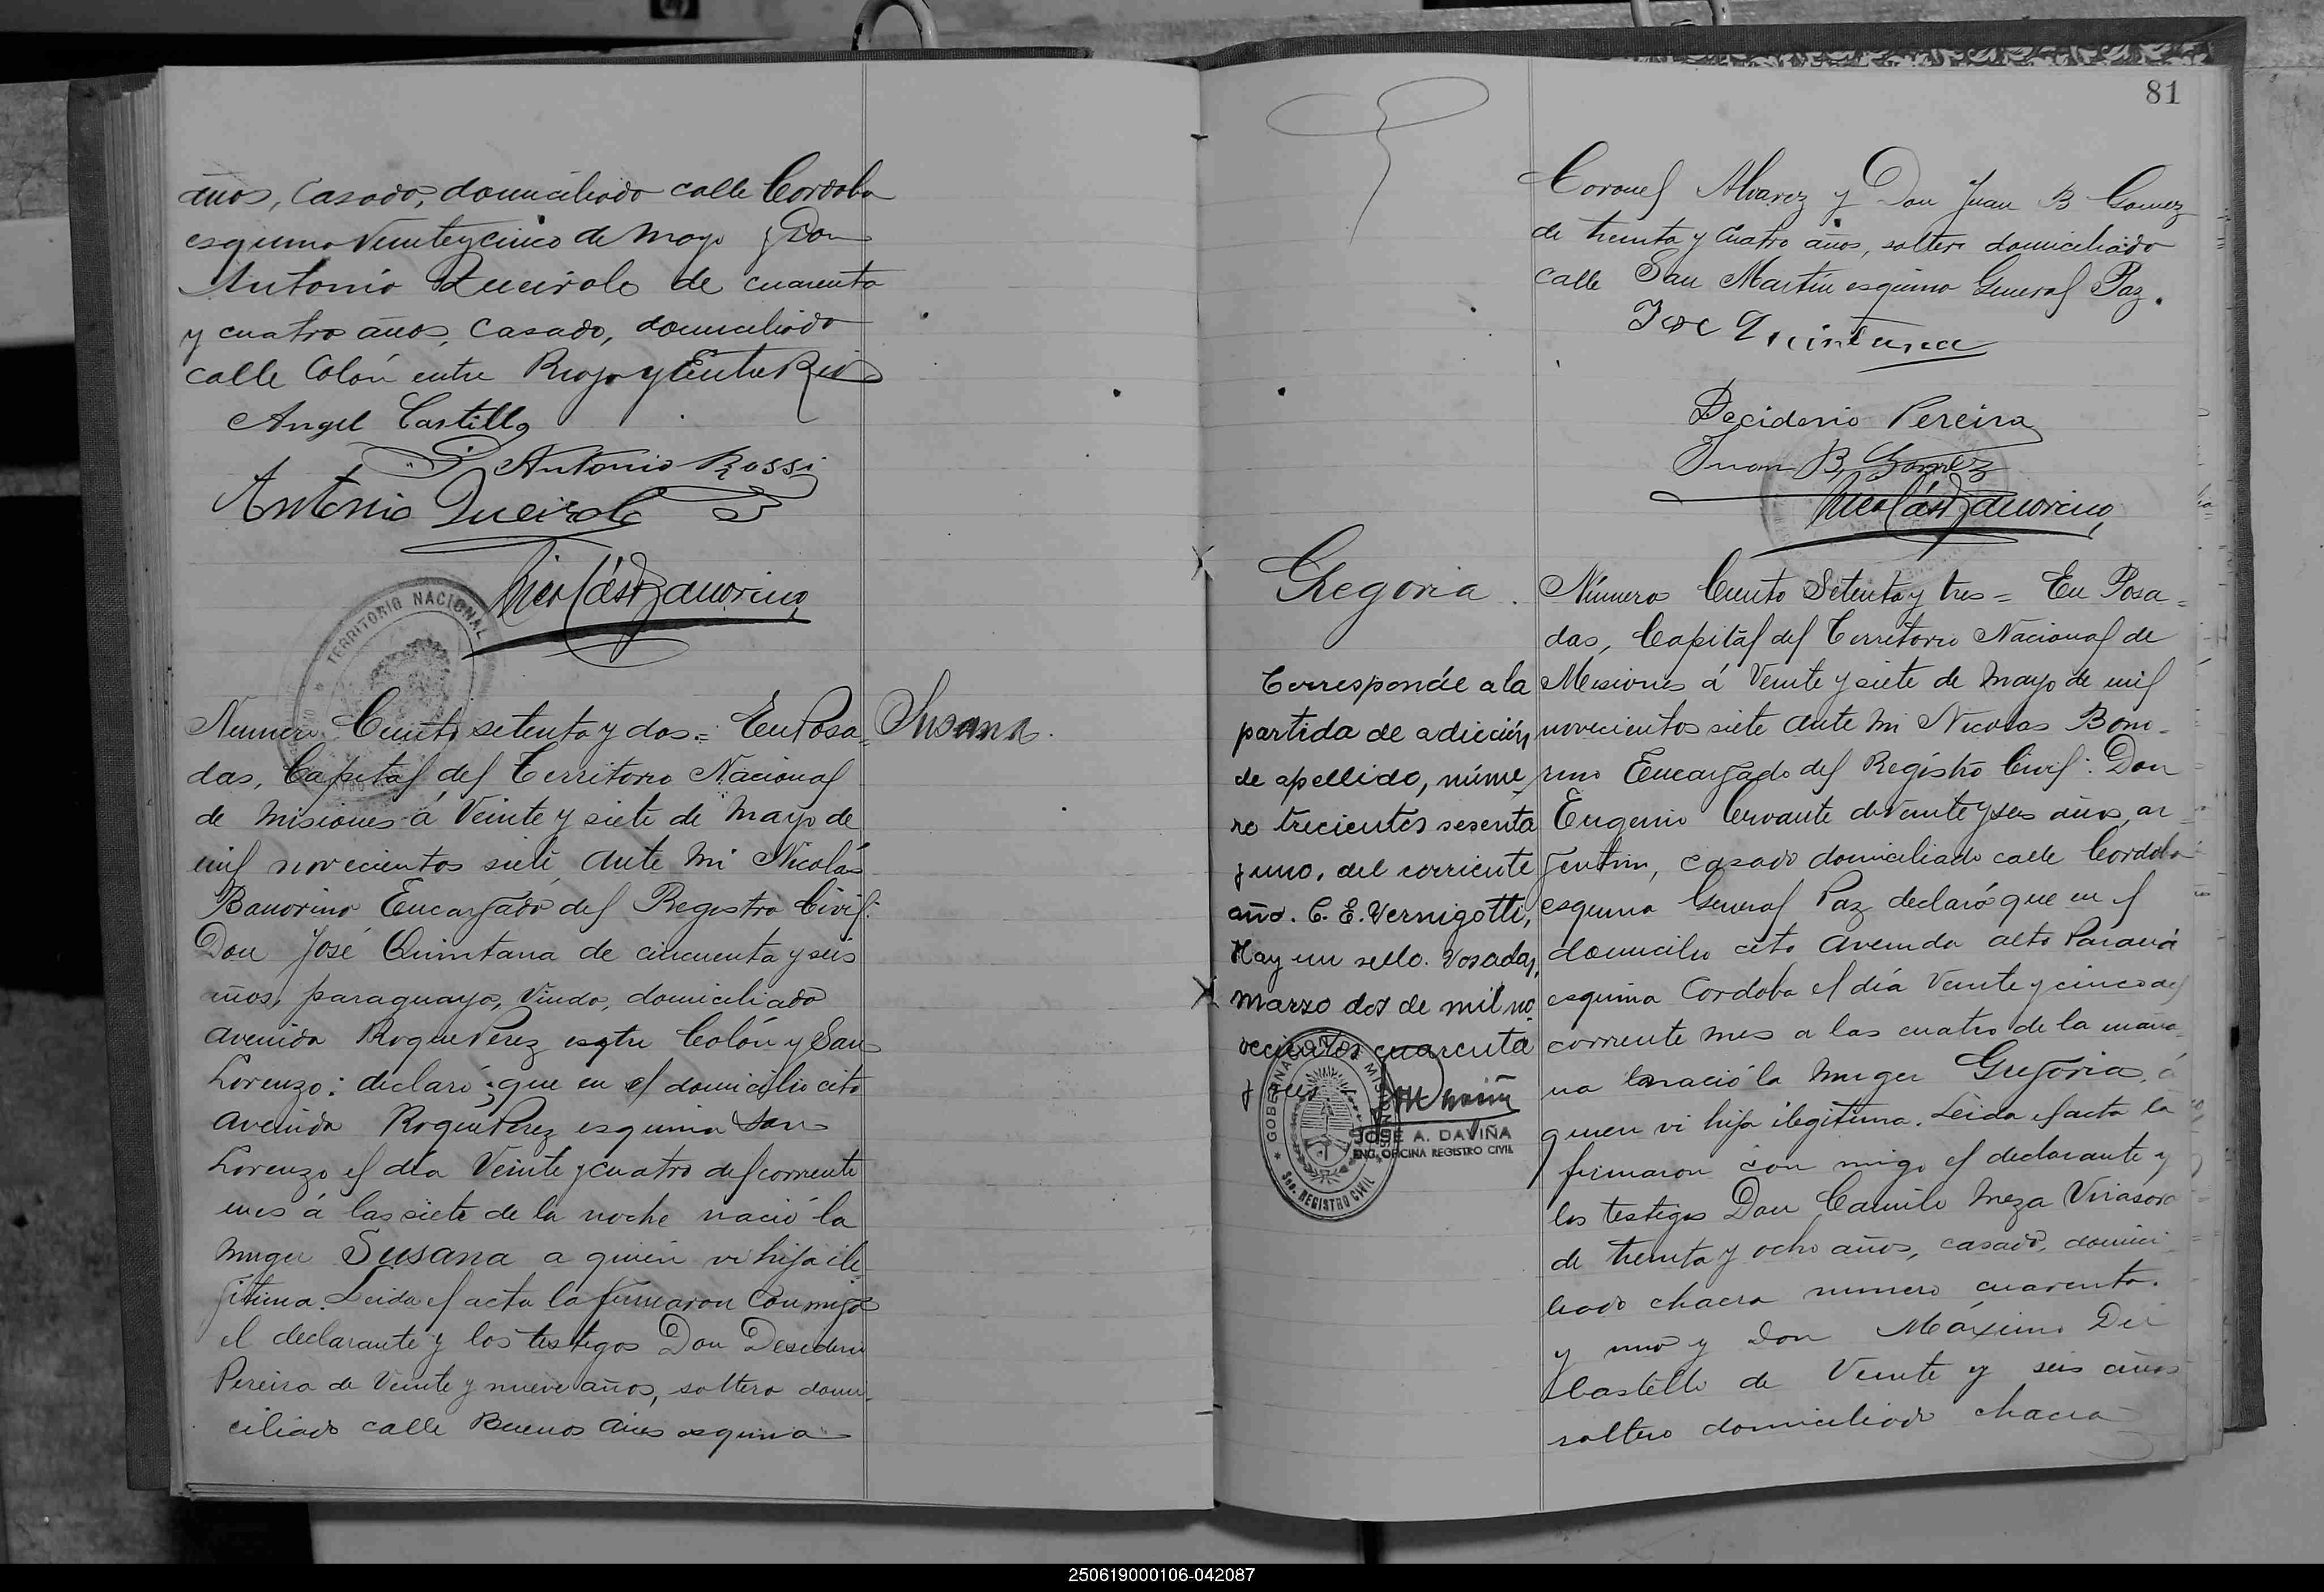 años, Casado, domiciliado calle Cordoba
esquina Veinteycinco de Mayo y Don
Antonio Queirolo de cuarenta
y cuatro años, Casado, domiciliado
calle Colón entre Rioja y Entre Rios
Angel Castillo
Antonio Rossi
Antonio Queirolo
TERRITORIO NACIONAL
Numero Ciento setenta y dos = En Posa=
das, Capital del Territorio Nacional
de Misiones á Veinte y siete de Mayo de
mil novecientos siete, ante mi Nicolás
Bonorino Encargado del Registro Civil:
Don José Quintana de cincuenta y seis
años, paraguayo, Viudo, domiciliado
Avenida Roque Perez entre Colón y San
Lorenzo: declaró; que en el domicilio cito
Avenida Roque Perez esquina San
Lorenzo el día Veinte y cuatro del corriente
mes á las siete de la noche nació la
muger Susana a quien vi hija ile
jitima. Leida el acta la firmaron Conmigo
el declarante y los testigos Don Desiderio
Pereira de Veinte y nueve años, soltero domi-
ciliado calle Buenos Aires esquina
Susana.
81
Coronel Alvarez y Don Juan B Gomez
de treinta y cuatro años, soltero domiciliado
calle San Martin esquina General Paz.
Jose Quintana
Deciderio Pereira
Juan B, Gomez
Gregoria.
Corresponde a la
partida de adición
de apellido, núme
ro trecientos sesenta
y uno, del corriente
año. C. E. Vernigotti,
Hay un sello. Posadas,
marzo dos de mil no
vecientos cuarenta
y
GOBERNACION MISIONES
Sec. REGISTRO CIVIL
JOSE A. DAVIÑA
ENC. OFICINA REGISTRO CIVIL
Número Ciento Setenta y tres = En Posa=
das, Capital del Territorio Nacional de
Misiones á Veinte y siete de Mayo de mil
novecientos siete ante mi Nicolas Bono-
rino Encargado del Registro Civil: Don
Eugenio Cervante de veinte y seis años, ar
jentino, casado domiciliado calle Cordoba
esquina General Paz declaró que en el
domicilio cito Avenida alto Paraná
esquina Cordoba el día Veinte y cinco del
corriente mes a las cuatro de la maña
na nació la muger Gregoria, á
quien vi hija ilegitima. Leida el acta la
firmaron con migo el declarante y
los testigos Don Camilo Meza Virasoro
de treinta y ocho años, casado, domici
liado chacra numero cuarenta.
y uno y Don Máximo Del
Castello de Veinte y seis años
soltero domiciliado chacra
250619000106-042087